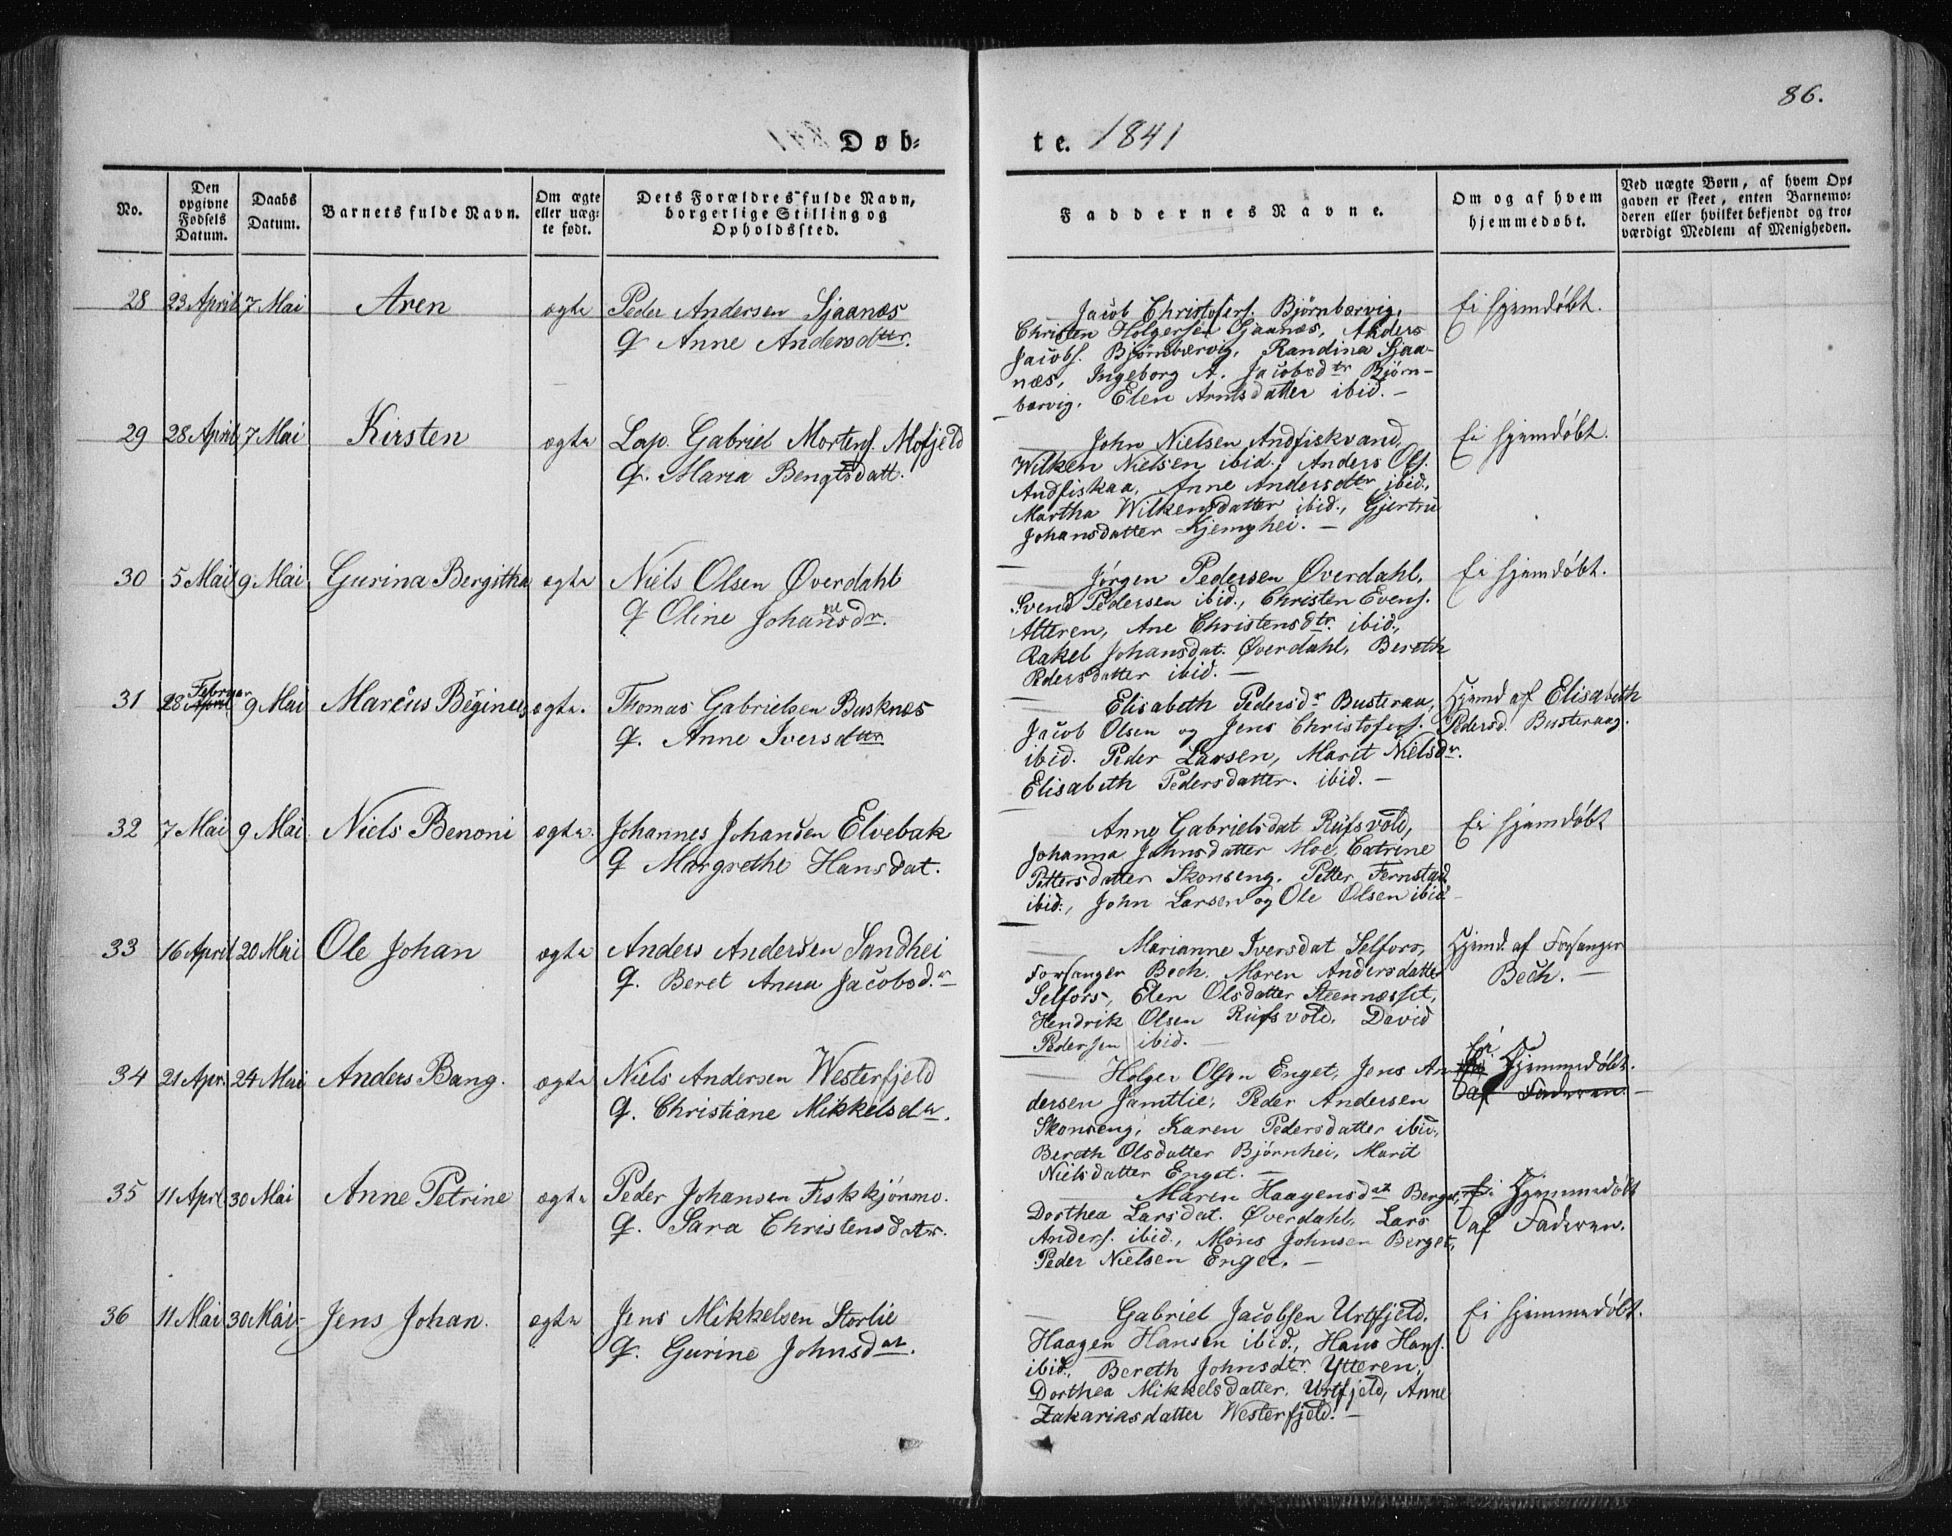 86.
Døb-
te. 1841
No.
Den opgivne Fødsels Datum.
Daabs Datum.
Barnets fulde Navn.
Om ægte eller uæg-te født.
Dets Forældres fulde Navn, borgerlige Stilling og Opholdssted.
Faddernes Navne.
Om og af hvem hjemmedøbt.
Ved uægte Børn, af hvem Op-
gaven er skeet, enten Barnemo-
deren eller hvilket bekjendt og tro-
værdigt Medlem af Menigheden.
28 23 April 7 Mai Aren ægte Peder Andersen Sjaanæs
q Anne Andersdttr.
Jacob Christofers. Bjørnbærvig,
Christen Holgersen Sjaanæs, Anders
Jacobs. Bjørnbærvig, Randina Sjaa-
næs, Ingeborg A. Jacobsdtr Bjørn-
bærvig, Elen Arntsdatter ibid. –
Ei hjemdøbt.
29 28 April 7 Mai Kirsten ægte Lap. Gabriel Mortens. Mofjeld
q. Maria Bengtsdatt.
John Nielsen Andfiskvand,
Wilken Nielsen ibid., Anders Ols.
Andfiskaa, Anne Andersdtr ibid.,
Martha Wilkensdatter ibid., Gjertru
Johansdatter Kjemghei. –
Ei hjemdøbt.
30 5 Mai 9 Mai Gurina Bergitha ægte Niels Olsen Øverdahl
q Oline Johansdr.
Jørgen Pedersen Øverdahl,
Svend Pedersen ibid., Christen Evens.
Alteren, Ane Christensdtr. ibid.,
Rakel Johansdat. Øverdahl, Bereth
Pedersdatter ibid. –
Ei hjemdøbt.
31 28 Februar April 9 Mai Marcus Beginus ægte. Thomas Gabrielsen Busknes
q. Anne Iversdttr
Elisabeth Pedersdr Busteraa,
Jacob Olsen og Jens Christofers.
ibid. Peder Larsen, Marit Nielsdr.
Elisabeth Pedersdatter. ibid. –
Hjemd af Elisabeth
Pedersd. Busteraag.
32 7 Mai 9 Mai. Niels Benoni ægte. Johannes Johansen Elvebak
q Margrethe Hansdat.
Anne Gabrielsdat Rufsvold,
Johanna Johnsdatter Moe, Catrine
Pettersdatter Skonseng, Petter Fernstad
ibid., John Larsen og Ole Olsen ibid
Ei hjemdøbt
33 16 April 20 Mai Ole Johan ægte Anders Andersen Sandhei
q. Beret Anna Jacobsd.r
Marianne Iversdat Selfors,
Forsanger Bech, Maren Andersdatter
Selfors, Elen Olsdatter Steennæsset,
Hendrik Olsen Rufsvold, David
Pedersen ibid. –
Hjemd. af Forsanger
Bech. –
34 21 Apr. 24 Mai Anders Bang. ægte Niels Andersen Westerfjeld
q. Christiane Mikkelsdr.
Holger Olsen Enget, Jens An
dersen Jamtlie, Peder Andersen
Skonseng, Karen Pedersdatter ibid.,
Bereth Olsdatter Bjørnhei, Marit
Nielsdatter Enget. –
Ei Hjemmedøbt.
af Faderen. –
35 11 Aprl 30 Mai Anne Petrine ægte Peder Johansen Fiskkjønmo.
q. Sara Christensdatr.
Maren Haagensdat Berget,
Dorthea Larsdat. Øverdahl, Lars
Anders. ibid., Mons Johnsen Berget,
Peder Nielsen Enget. –
Ei Hjemmedøbt
af Faderen.
36 11 Mai 30 Mai – Jens Johan. ægte Jens Mikkelsen Storlie
q. Gurine Johnsdat.
Gabriel Jacobsen Urtfjeld.
Haagen Hansen ibid., Hans Hans.
ibid., Bereth Johnsdtr. Ytteren,
Dorthea Mikkelsdatter Urtfjeld, Anne
Zakariasdatter Westerfjeld. –
Ei hjemmedøbt.